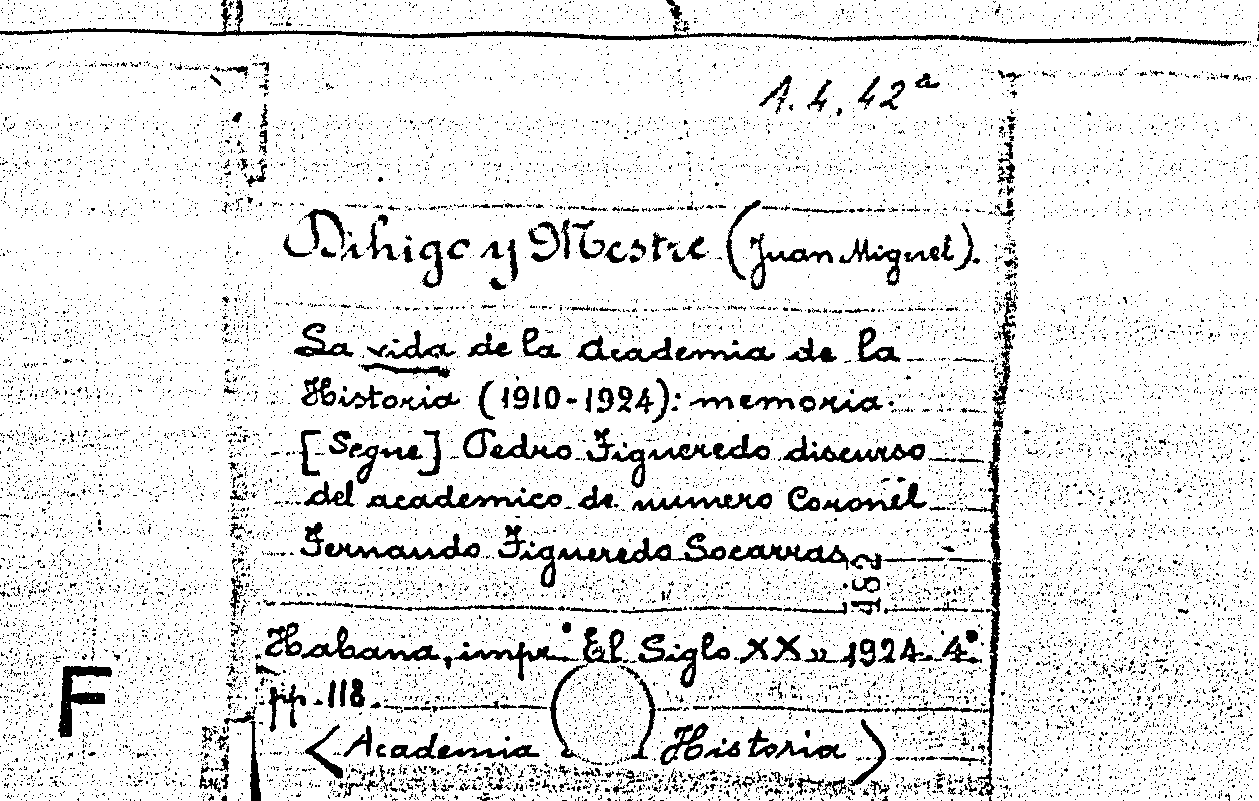 1.4.42ª
Dihigo y Mestre (Juan Miguel).
La vida de la Academia de la
Historia (1910-1924): memoria.
[Segue] Pedro Figueredo discurso
del academico de numero Coronel
Fernando Figueredo Socarras
462
Habana, impr. El Siglo XX» 1924. 4º
pp. 118.
F
<Academia Historia>